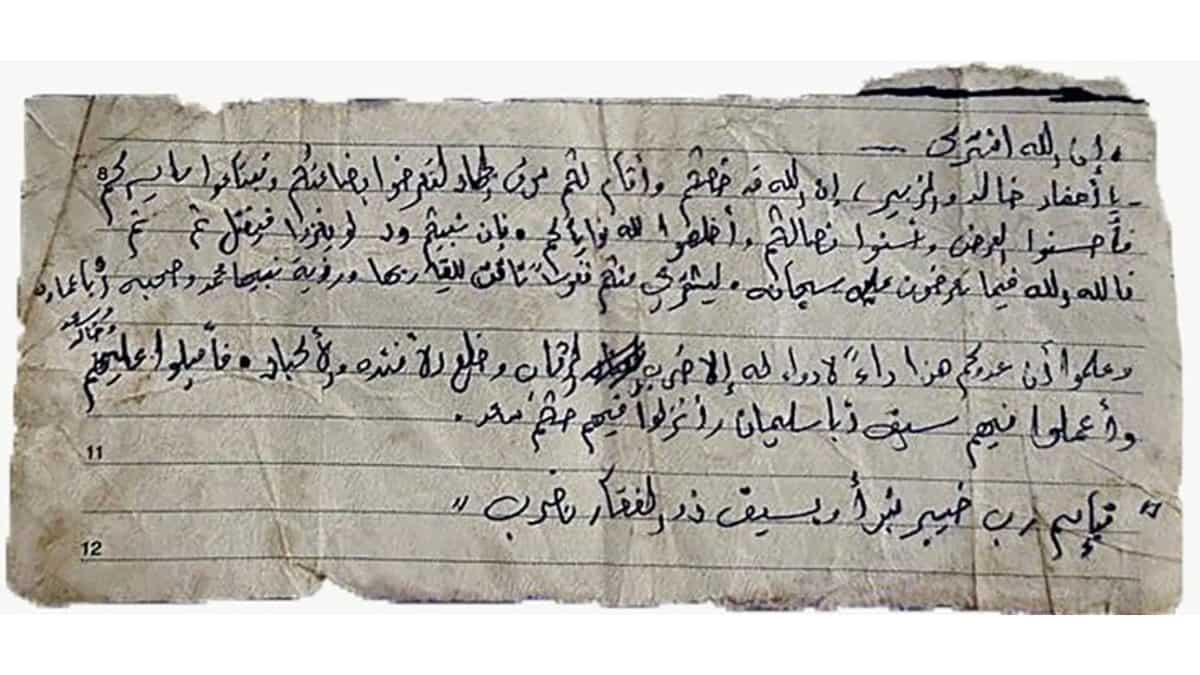 إن الله اشترى —
8 - يا أحفاد خالد والزبير، إن الله قد خصكم وأقام لكم سوق الجهاد لتعرضوا بضاعتكم وتبتاعوا ما يسركم
فأحسنوا العرض وسنوا نصالكم وأخلصوا لله نواياكم. فإن نبيكم ود لو يغزوا فيقتل ثم ثم
فالله الله فيما تعرضون عليه سبحانه. ليشتري منكم نفوساً تاقت للقاء ربها ورؤية نبيها محمد وصحبه أبا عمارة
وخالد
وعلموا أن عدوكم هذا داءً لا دواء له إلا ضرب الرقاب وخلع الأفئدة والأكباد. فأقبلوا عليهم
وأعملوا فيهم سيف أبا سليمان وأنزلوا فيهم حكم سعد.
11
" فبإسم رب خيبر نبرأ وبسيف ذو الفقار نضرب "
12